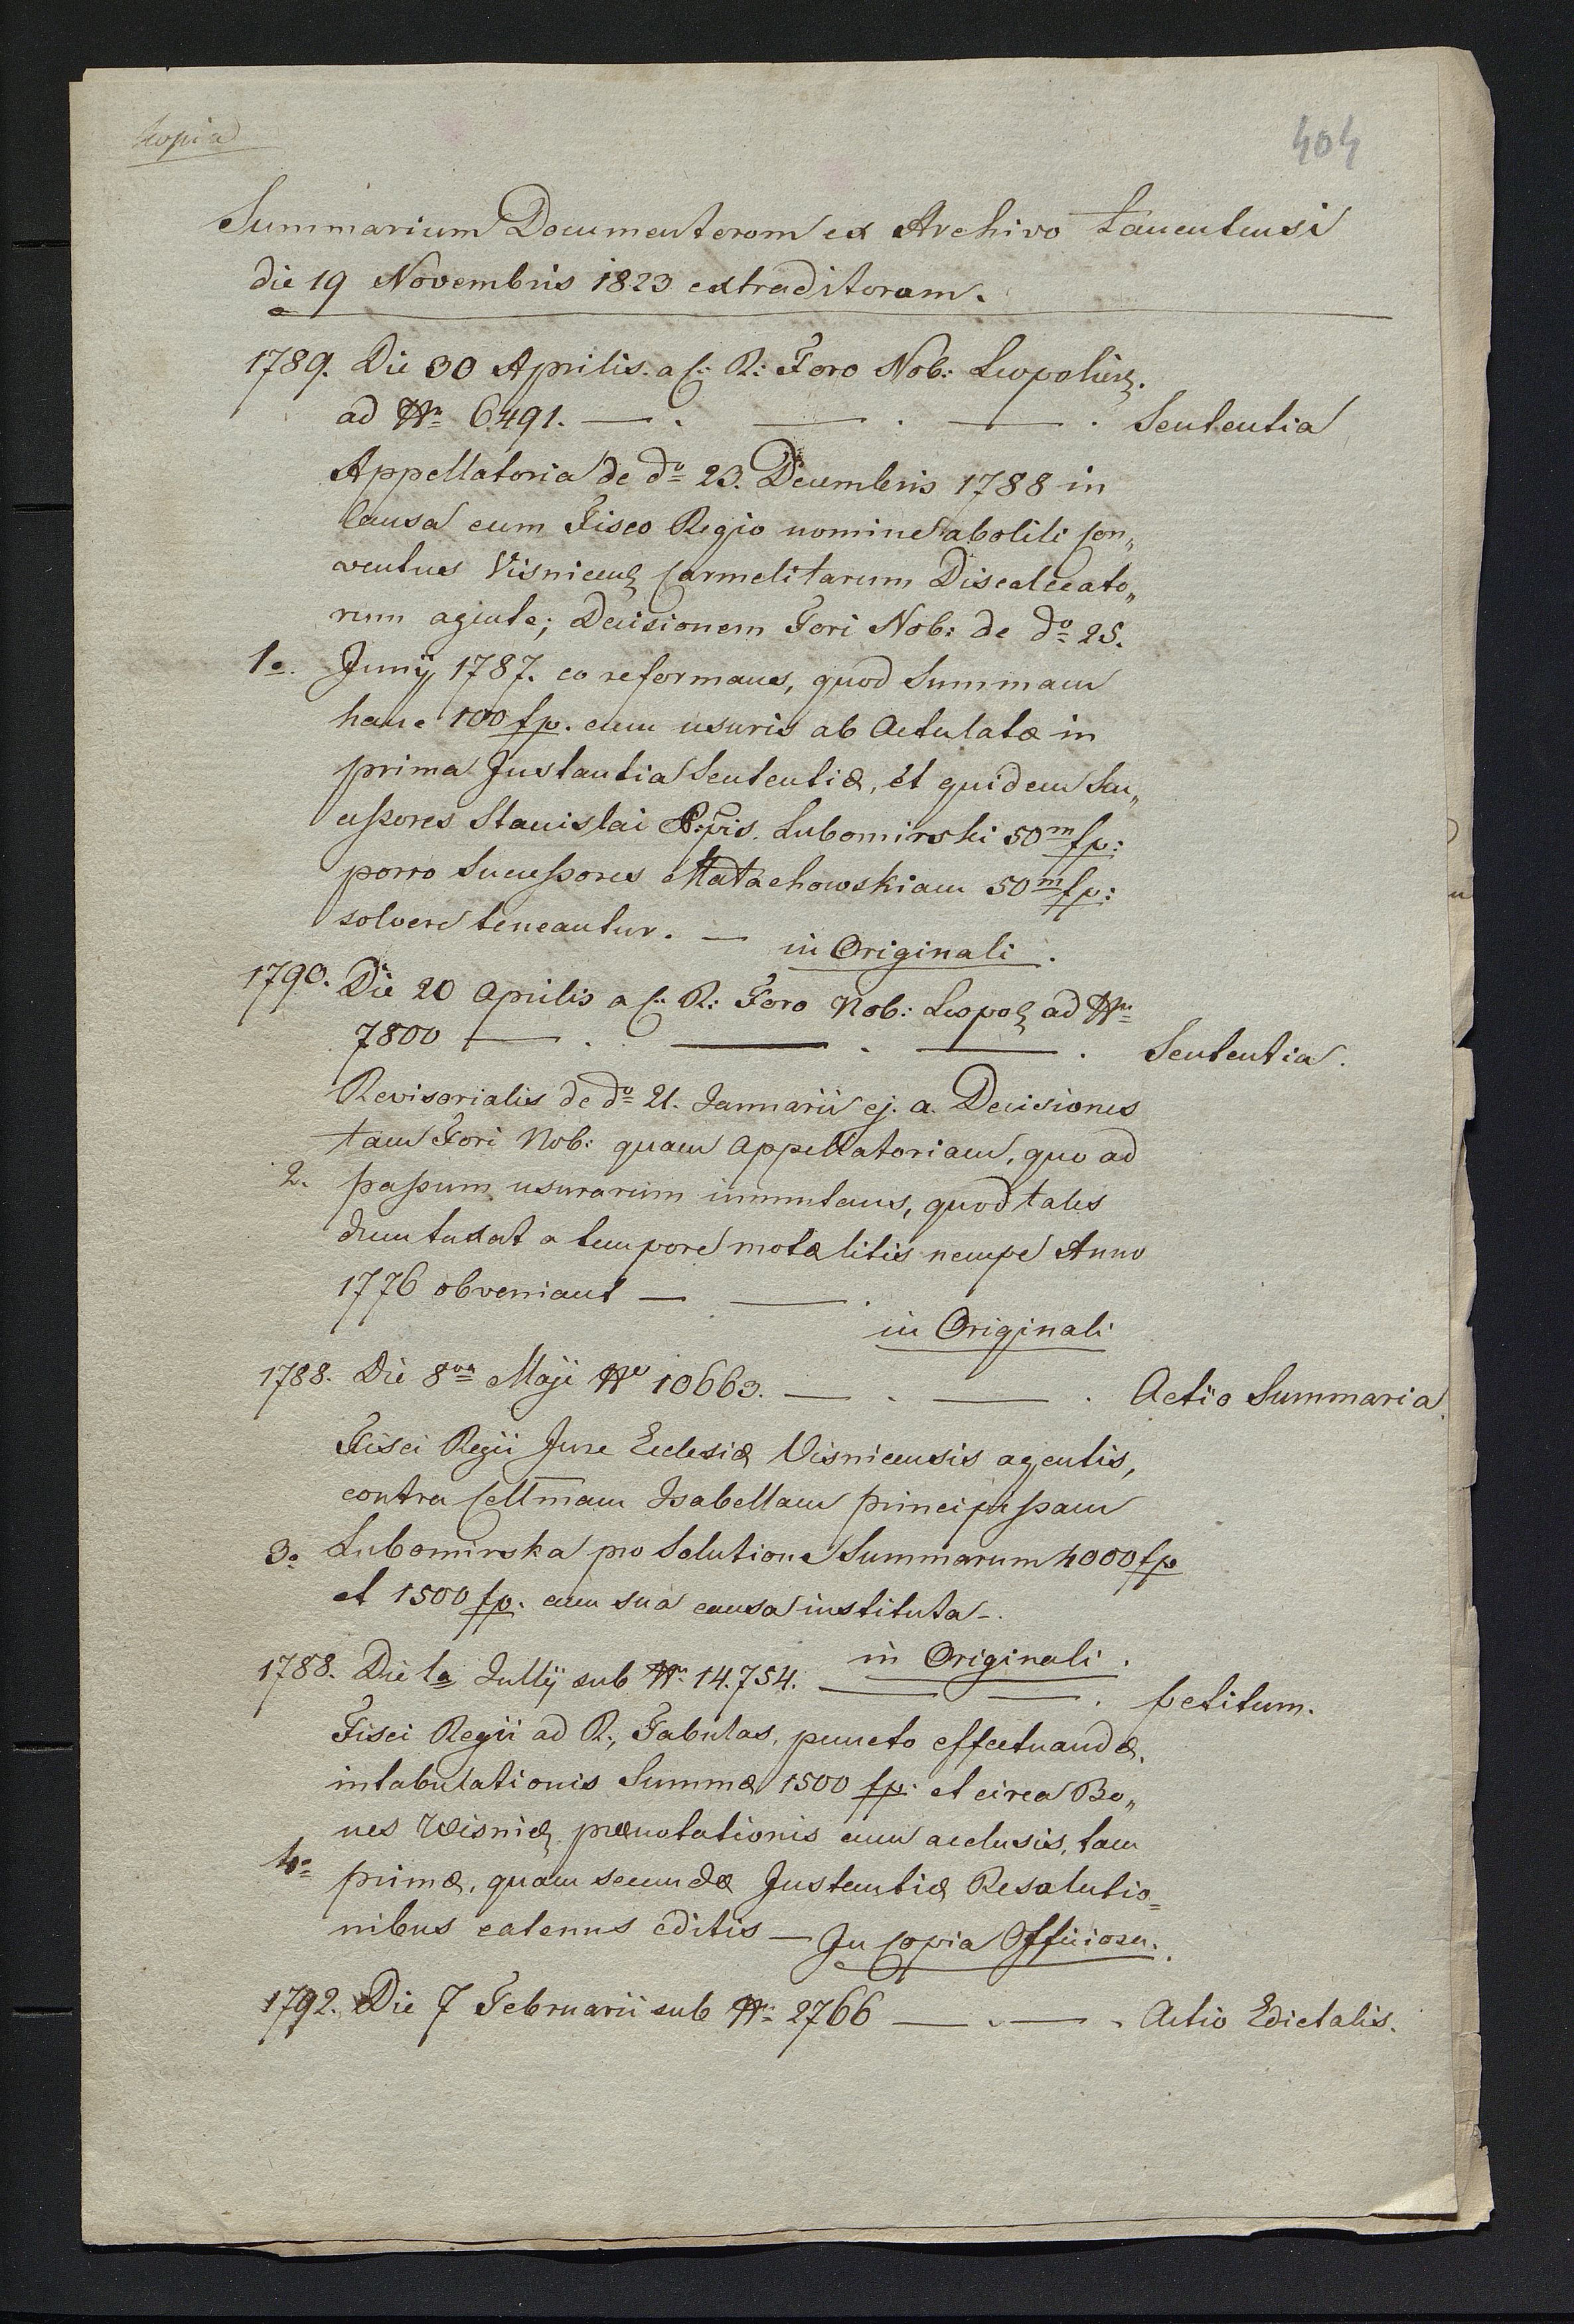 Kopia
404
Summarium Documentorum ex Archivo Łancutensi
die 19 Novembris 1823 extraditorum.
1789. Die 30 Aprilis. a C: R: Foro Nob: Leopoliens.
ad Nr 6491. — . — . — . Sententia
Appellatoria de do 23. Decembris 1788 in
Causa cum Fisco Regio nomine aboliti Con„
ventus Visnicens Carmelitarum Discalceato„
rum agente; Decisionem Fori Nob: de do 25.
1o. Junij 1787. eo reformans, quod Summam
hanc 100 fp. cum usuris ab Actulatæ in
prima Instantia Sententiæ, et quidem Suc„
cessores Stanislai Ppis. Lubomirski 50m fp:
porro Successores Małachowskiam 50m fp:
solvere teneantur. — in Originali.
1790. Die 20 Aprilis a C: R: Foro Nob: Leopol ad Nr
7800 — . — . — . Sententia.
Revisorialis de do 21. Januarii ej. a. Decisiones
tam Fori Nob: quam Appellatoriam, quo ad
2. passum usurarum immutans, quod tales
dumtaxat a tempore motæ litis nempe Anno
1776 obveniant — — .
in Originali
1788. Die 8va Maji No 10663. — . — . Actio Summaria.
Fisci Regii Jure Ecclesiæ Visnicensis agentis,
contra Cellmam Isabellam principissam
3o Lubomirska pro Solutione Summarum 4000 fp
et 1500 fp. cum sua causa instituta -.
in Originali.
1788. Die 1a Jullij sub Nr. 14.754. — — . petitum.
Fisci Regii ad R., Tabulas, puncto effectuandæ
intabulationis Summæ 1500 fp. et circa Bo„
nes Wisnic prænotationis cum acclusis, tam
4o primæ, quam secundæ Instantiæ Resolutio=
nibus eatenus editis — In Copia Officiosa.
1792. Die 7 Februarii sub Nr. 2766 — . — . Actio Edictalis.